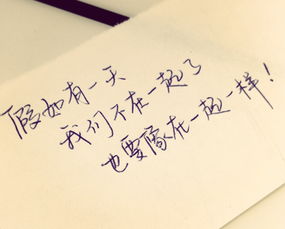 假如有一天
我们不在一起了
也要像在一起一样!